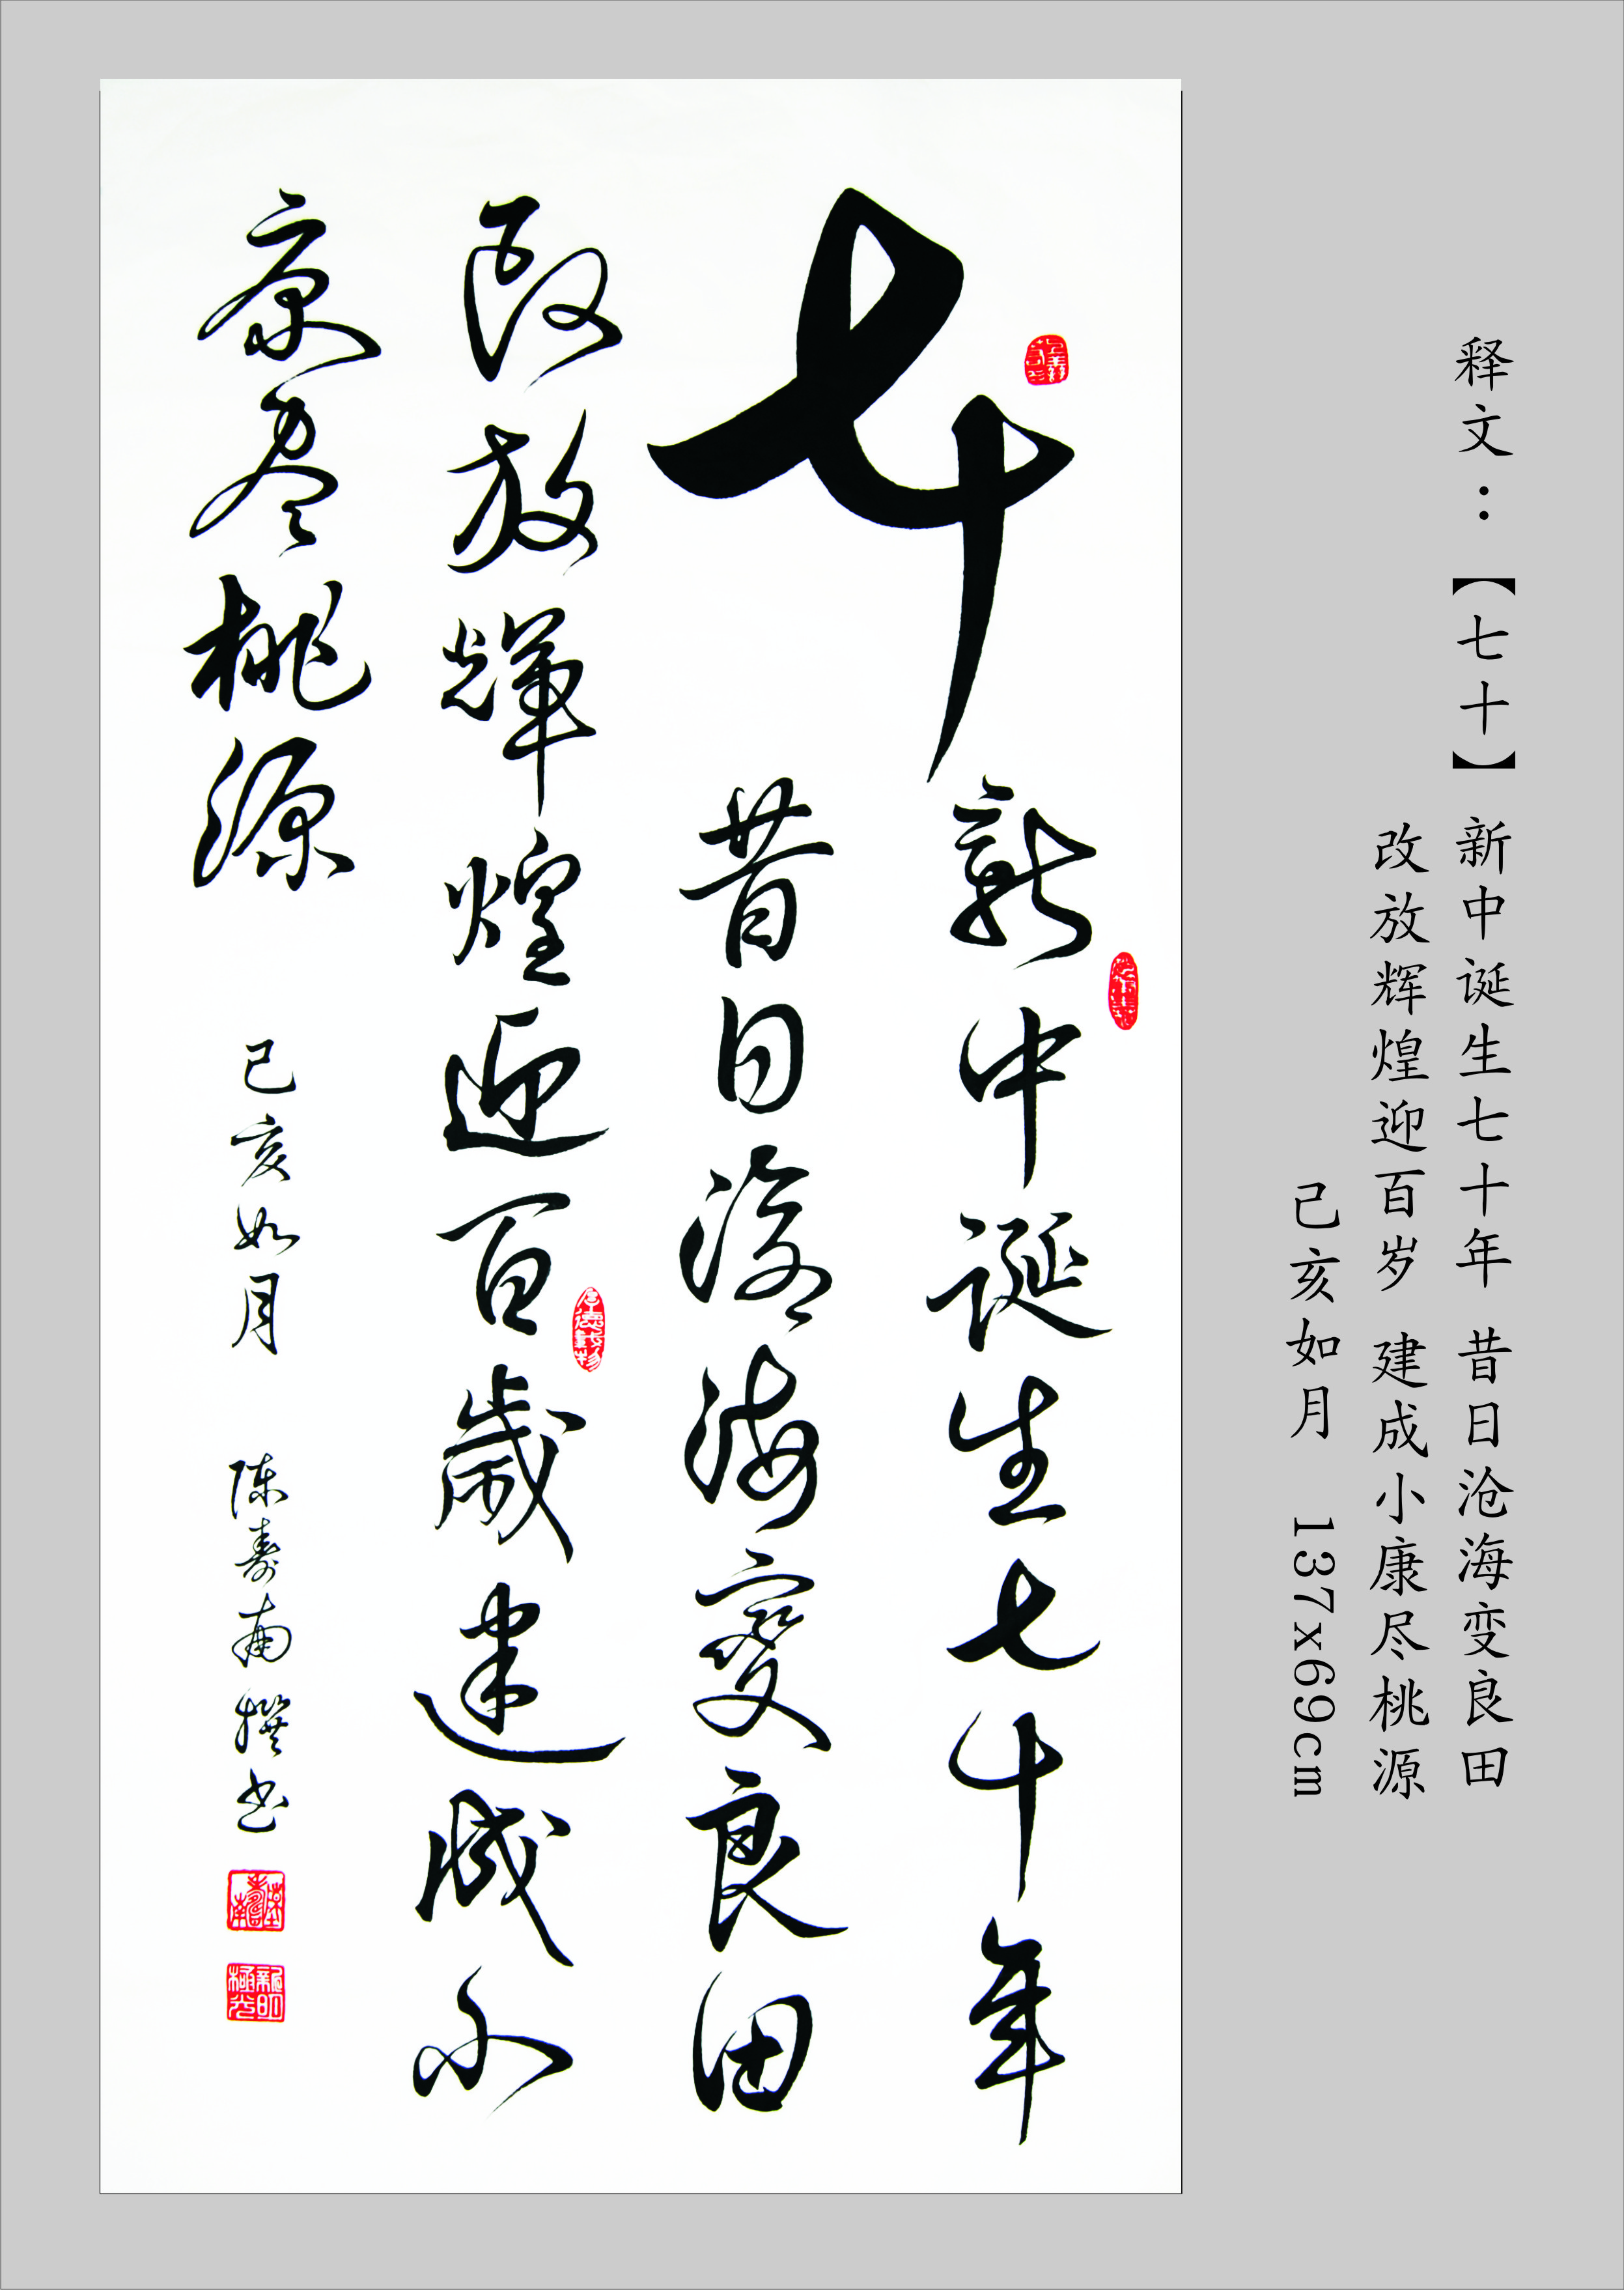 释文：【七十】新中诞生七十年 昔日沧海变良田
改放辉煌迎百岁 建成小康尽桃源
己亥如月 137x69cm
七十
新中诞生七十年
昔日滄海變良田
改放輝煌迎百歲建成小
康尽桃源
己亥如月 陈寿南撰书
厚德載物